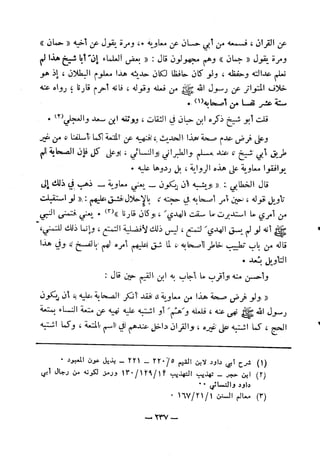 عن القران ، فسمعه من أبي حسان عن معاوية ، ومرة يقول عن أخيه « جمان »
ومرة يقول « جمان » وهم مجهولون قال : « بعض العلماء إن أبا شيخ هذا لم
تعلم عدالته وحفظه ، ولو كان حافظا لكان حديثه هذا معلوم البطلان ، إذ هو
خلاف المتواتر عن رسول الله ﷺ من فعله وقوله ، فانه أحرم قارنا رواه عنه
ستة عشر نفسا من أصحابه (١) ٠
قلت أبو شيخ ذكره ابن حبان في الثقات ، ووثقه ابن سعد والعجلي (٢) ٠
وعلى فرض عدم صحة هذا الحديث ، فنهيه عن المتعة كما أسلفنا من غير
طريق أبي شيخ عند مسلم والطبراني والنسائي ، وعلى كل فإن الصحابة لم
يوافقوا معاوية على هذه الرواية ، بل ردوها عليه ٠
قال الخطابي : « ويشبه أن يكون ـ يعني معاوية ـ ذهب في ذلك إلى
تأويل قوله ، حين أمر أصحابه في حجته بالإحلال فشق عليهم : « لو استقبلت
من أمري ما استدبرت ما سقت الهدي ، وكان قارنا » (٣) ٠ يعني فتمنى النبي
ﷺ أنه لو لم يسق الهدي ليتمتع ، ليس ذلك لأفضلية التمتع ، وإنما ذلك للتمني ،
قاله من باب تطييب خاطر أصحابه ، لما شق عليهم أمره لهم بالفسخ ، وفي هذا
التأويل بعد ٠
وأحسن منه وأقرب ما أجاب به ابن القيم حين قال :
« ولو فرض صحة هذا من معاوية فقد أنكر الصحابة عليه ، أن يكون
رسول الله ﷺ نهى عنه ، فلعله وهم ، أو اشتبه عليه نهيه عن متعة النساء بمتعة
الحج ، كما اشتبه على غيره ، والقران داخل عندهم في اسم المتعة ، وكما اشتبه
(١) شرح أبي داود لابن القيم ٢٢٠/٥ ـ ٢٢١ ـ بذيل عون المعبود ٠
(٢) ابن حجر ـ تهذيب التهذيب ١٢٩/١٢ ـ ١٣٠ ورمز لكونه من رجال أبي
داود والنسائي ٠٠
(٣) معالم السنن ١٦٧/٢/١ ٠
ـ ٢٣٧ ـ